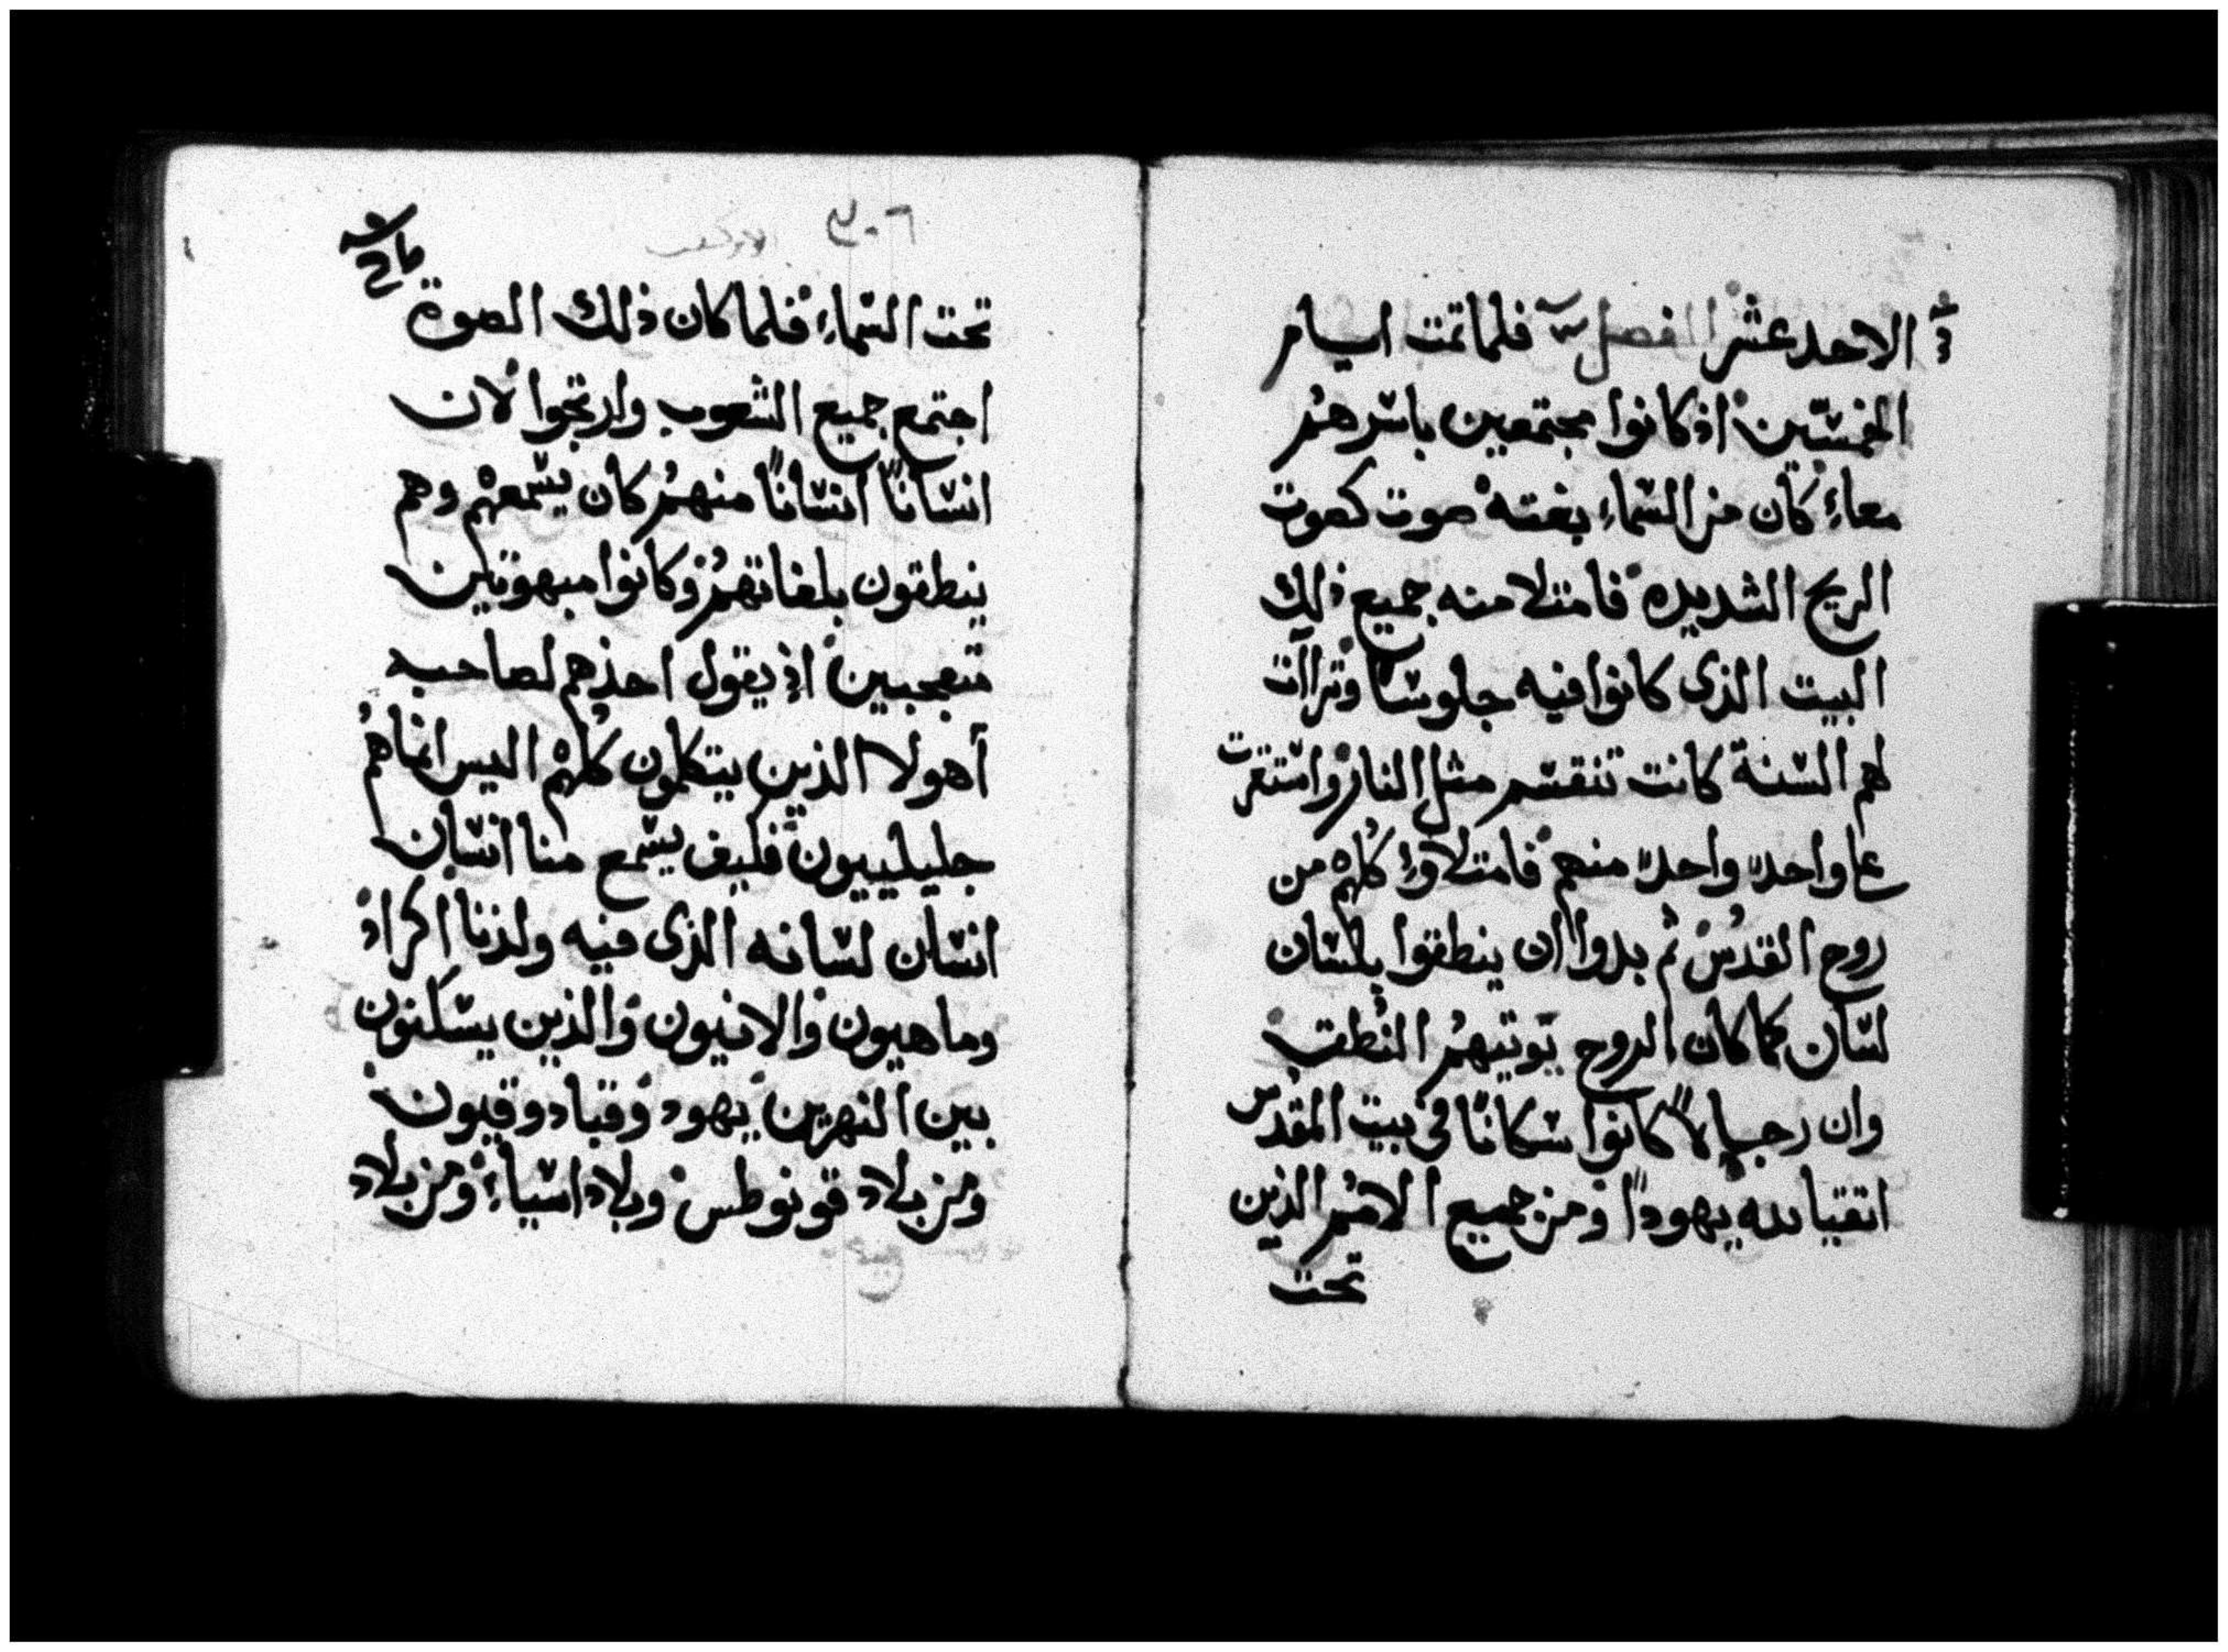 الاحد عشر الفصل فلما تمت ايام
الخمسين اذ كانوا مجتمعين باسرهم
معاء كان من السماء بغته صوت كصوت
الريح الشديده فامتلا منه جميع ذلك
البيت الذى كانوا فيه جلوسا وترأات
لهم السنة كانت تنقسم مثل النار واستقرت
على واحدا واحدا منهم فامتلاوا كلهم من
روح القدس ثم بدوا ان ينطقوا بلسان
لسان كما كان الروح يوتيهم النطق
وان رجالاً كانوا سكانا فى بيت المقدس
اتقيا لله يهوداً ومن جميع الامم الذين
تحت
٣٠٦ الابركسيس
تحت السماء فلما كان ذلك الصوة
اجتمع جميع الشعوب وارتجوا لان
انساناً انساناً منهم كان يسمعهم وهم
ينطقون بلغاتهم وكانوا مبهوتين
متعجبين اذ يقول احدهم لصاحبه
أهولا الذين يتكلمون كلهم اليس انما هم
جليلييون فكيف يسمع منا انسان
انسان لسانه الذى فيه ولدنا اكراد
وماهيون والانيون والذين يسكنون
بين النهرين يهود وقبادوقيون
ومن بلاد قونوطس وبلاد اسياء ومن بلاد